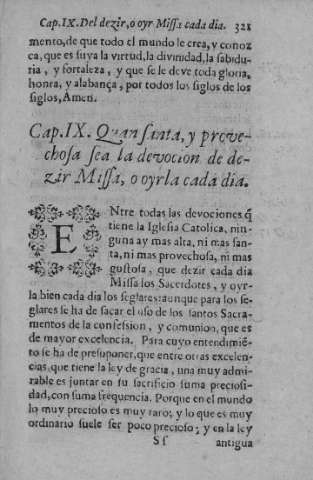 Cap. IX. Del dezir, o oyr Missa cada dia. 321
mento, de que todo el mundo le crea, y conoz
ca, que es suya la virtud, la divinidad, la sabidu-
ria, y fortaleza, y que se le deve toda gloria,
honra, y alabança, por todos los siglos de los
siglos, Amen.
Cap. IX. Quan santa, y prove-
chosa sea la devocion de de-
zir Missa, o oyrla cada dia.
ENtre todas las devociones q̃
tiene la Iglesia Catolica, nin-
guna ay mas alta, ni mas san-
ta, ni mas provechosa, ni mas
gustosa, que dezir cada dia
Missa los Sacerdotes, y oyr-
la bien cada dia los seglares: aunque para los se-
glares se ha de sacar el uso de los santos Sacra-
mentos de la confession, y comunion, que es
de mayor excelencia. Para cuyo entendimiē-
to se ha de presuponer, que entre otras excelen-
cias, que tiene la ley de gracia, una muy admi-
rable es juntar en su sacrificio suma preciosi-
dad, con suma frequencia. Porque en el mundo
lo muy precioso es muy raro; y lo que es muy
ordinario suele ser poco precioso; y en la ley
Ss antigua